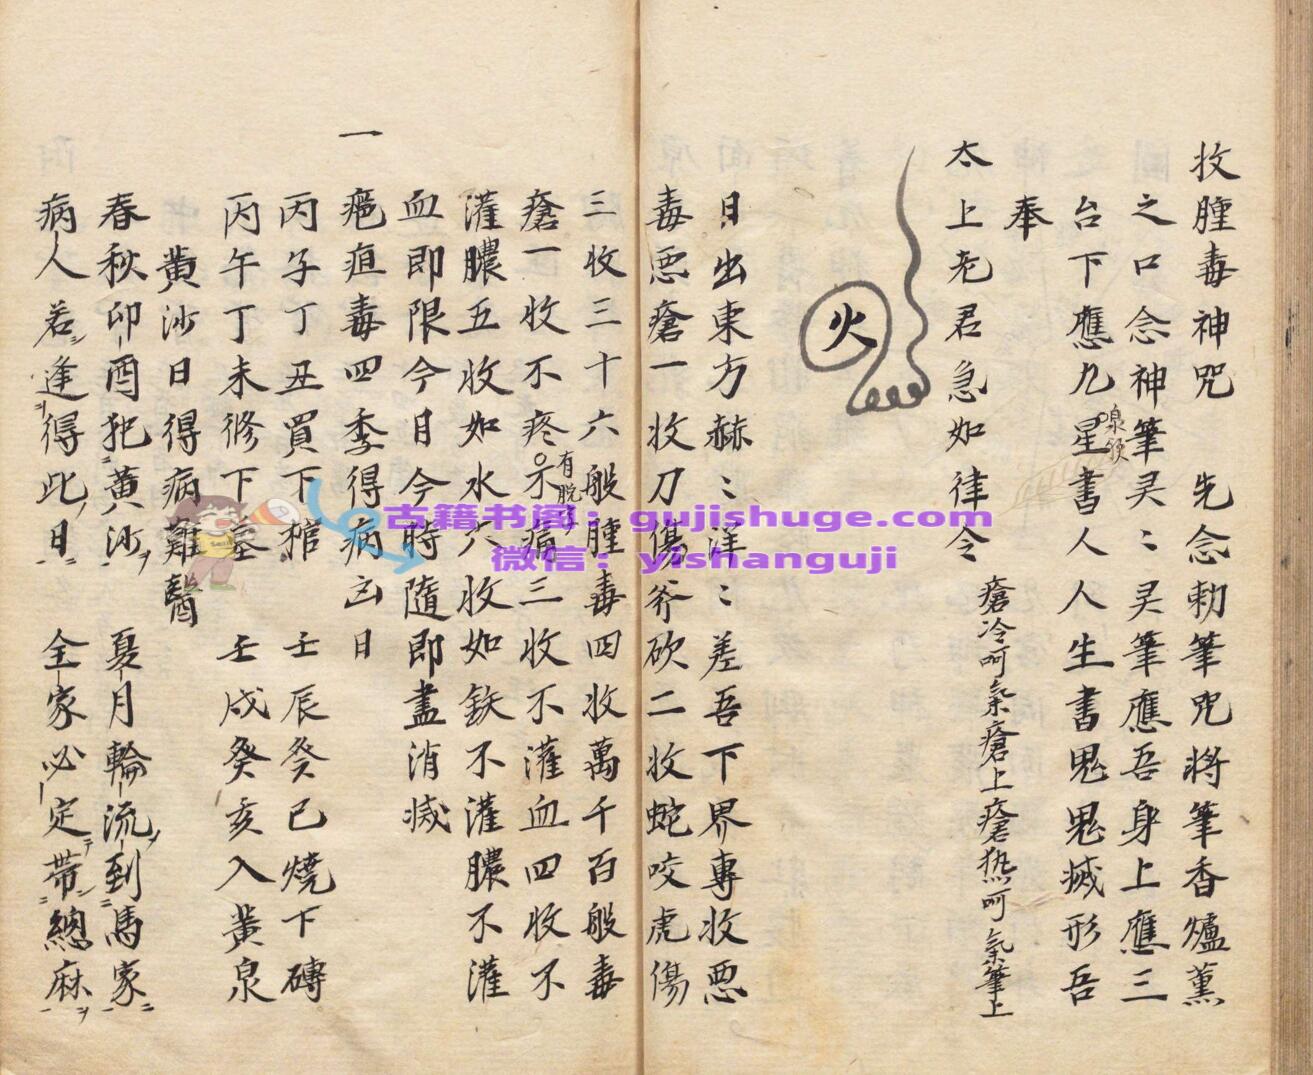 收腫毒神咒　先念勅筆咒將筆香爐薫
之口念神筆灵〻灵筆應吾身上應三
台下應九星書人人生書鬼鬼滅形吾
奉
太上老君急如律令
瘡冷呵氣瘡上瘡热呵氣筆上
火
日出東方赫〻洋〻差吾下界專收惡
毒恶瘡一收刀傷斧砍二收蛇咬虎傷
三收三十六般腫毒四收萬千百般毒
瘡一收不疼示痛三收不灌血四收不
有脱
灌膿五收如水六收如鉄不灌膿不灌
血即限今日今時隨即盡消滅
一
疤疸毒四季得病凶日
丙子丁丑買下棺　壬辰癸巳燒下磚
丙午丁未修下墓　壬戌癸亥入黃泉
黄沙日得病難醫
春秋卯酉犯黃沙　夏月輪流到馬家
病人若逢得此日　全家必定帶總麻
古籍书阁：gujishuge.com
微信：yishanguji